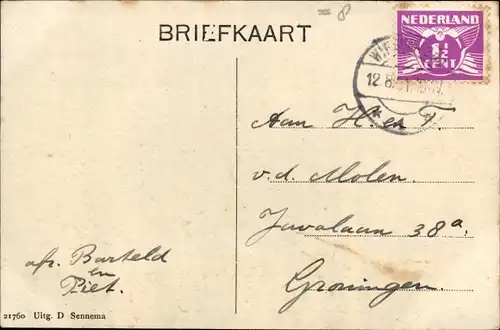 = 8
BRIEFKAART
NEDERLAND
1½
CENT
12.8
Aan H. en F.
v.d. Molen
Javalaan 38a.
Groningen.
afz. Barteld
en
Piet.
21760 Uitg. D Sennema